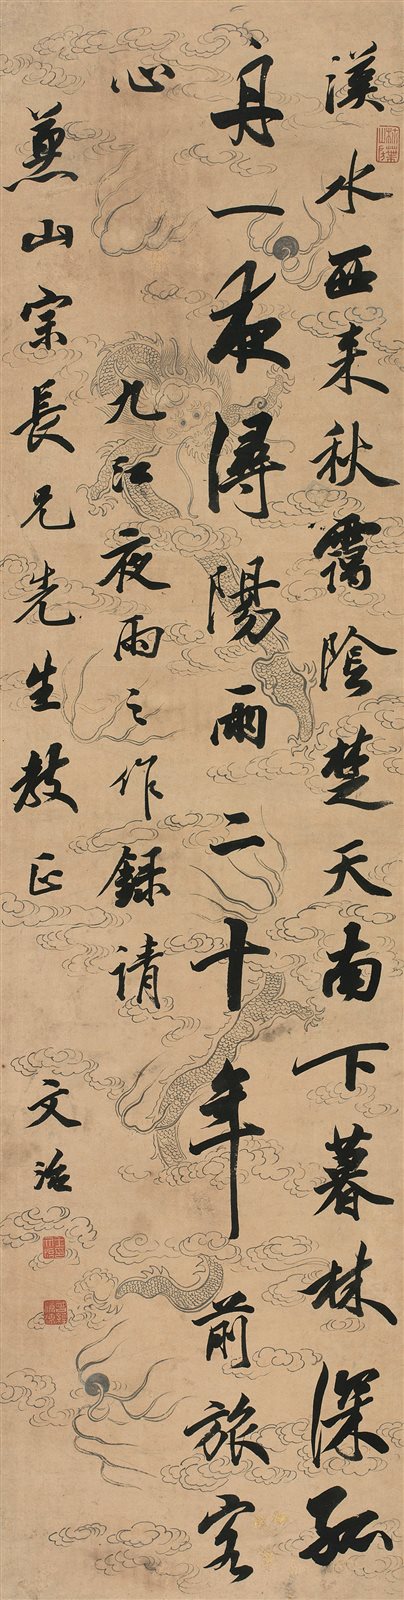 溪水西来秋靄陰楚天南下暮林深孤
舟一夜潯陽雨二十年前旅客
心 九江夜雨之作録請
山宗長兄先生教正 文治